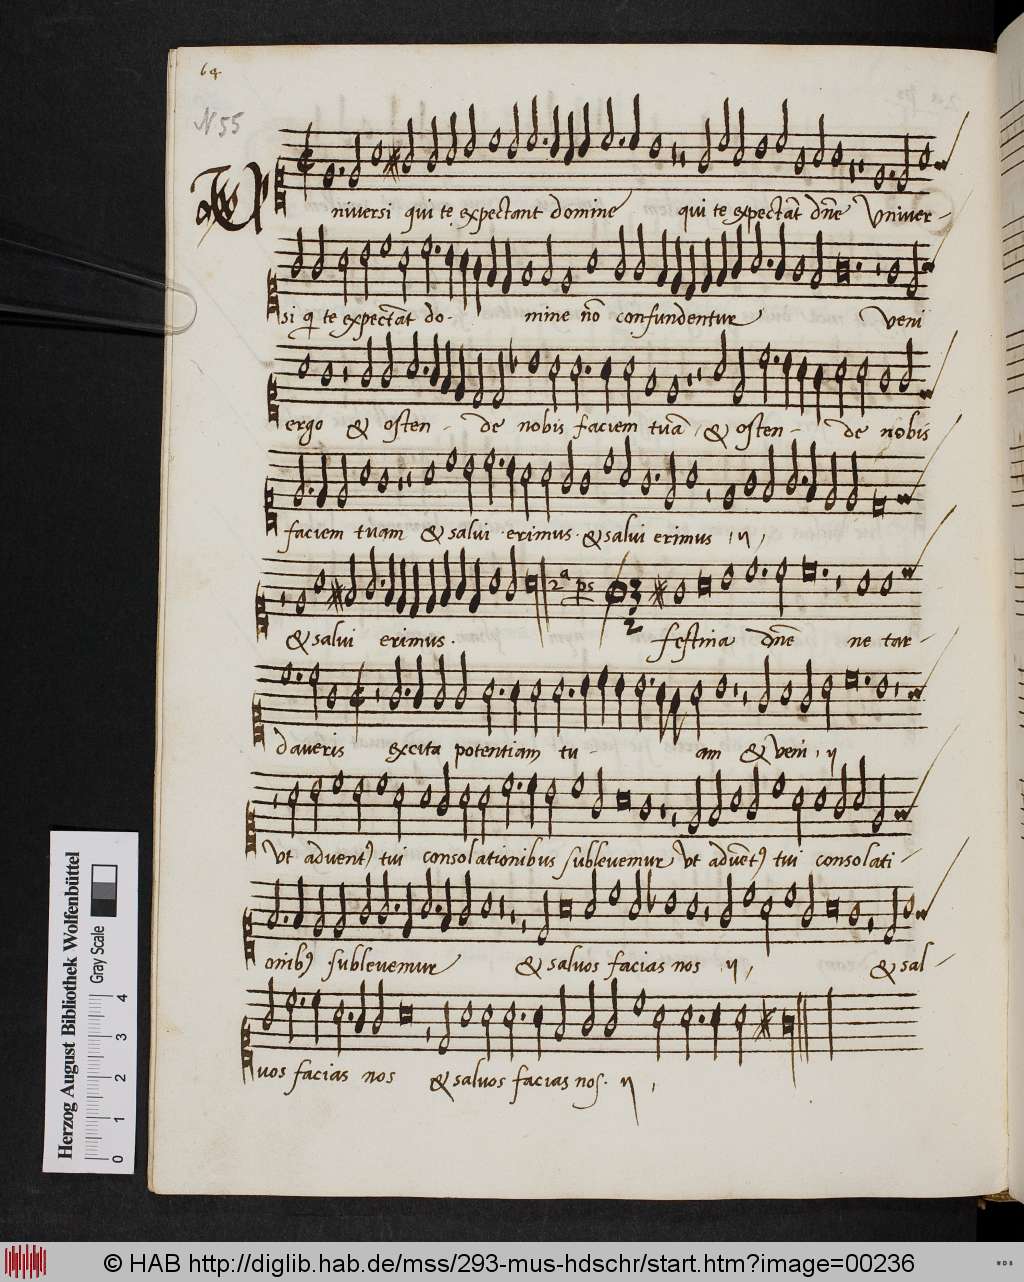 64
N 55
Universi qui te expectant domine qui te expectāt dn̄e Univer-
si q te expectāt do- mine nō confundentur veni
ergo & osten - de nobis faciem tuā, & osten - de nobis
faciem tuam & salvi erimus & salvi erimus , ij ,
& salvi erimus.
2ª ps
3
2
festina dn̄e ne tar-
daveris excita potentiam tu - am & veni , ij
Ut advent9 tui consolationibus sublevemur Ut advēt9 tui consolati-
onib9 sublevemur & salvos facias nos ij , & sal-
vos facias nos & salvos facias nos. ij ,
Herzog August Bibliothek Wolfenbüttel
Gray Scale
0 1 2 3 4
© HAB http://diglib.hab.de/mss/293-mus-hdschr/start.htm?image=00236